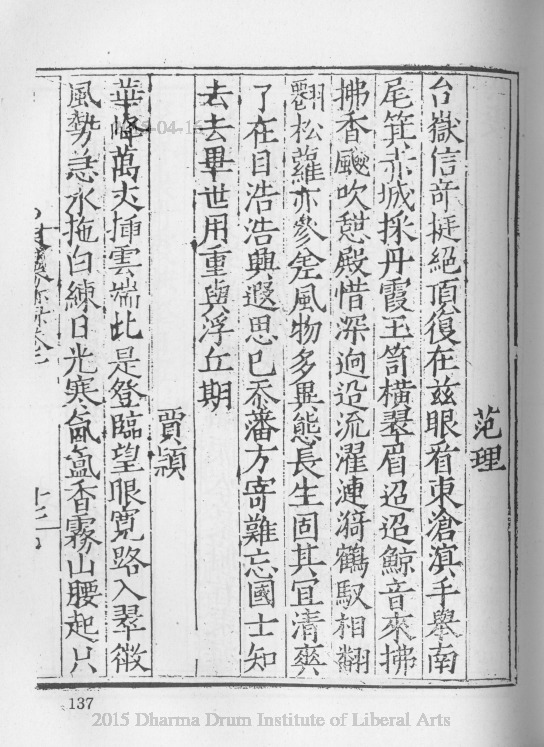 范理
台嶽信奇挺絕頂復在茲眼看東滄溟手舉南
尾箕赤城採丹霞玉笥橫翠眉迢迢鯨音來拂
拂香颸吹憇殿惜深逈沿流濯漣漪鶴馭相翩
翻松蘿亦參差風物多異態長生固其宜清爽
了在目浩浩興遐思已忝藩方寄難忘國士知
去去畢世用重與浮丘期
賈頴
華峰萬丈揷雲端此是登臨望眼寬路入翠微
風勢急水拖白練日光寒氤氳香霧山腰起只
137
2015 Dharma Drum Institute of Liberal Arts